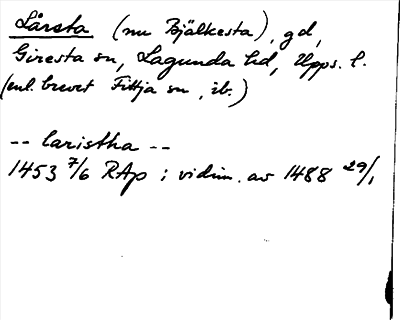 Lårsta (nu Bjälkesta), gd,
Giresta sn, Lagunda hd, Upps. l.
(enl. brevet Fittja sn, ib.)
-- laristha --
1453 7/6 RAp i vidim. av 1488 29/1